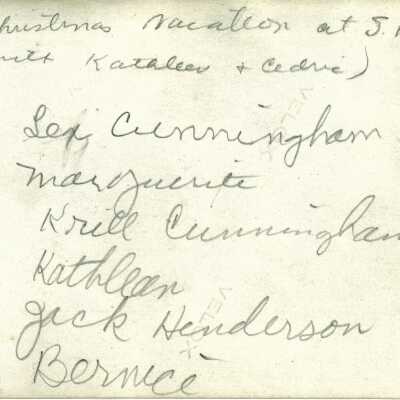 Christmas vacation at S.
with Kathleen + Cedric)
Lex Cunningham
Marguerite
Krill Cunningham
Kathleen
Jack Henderson
Bernice
VELOX
VELOX